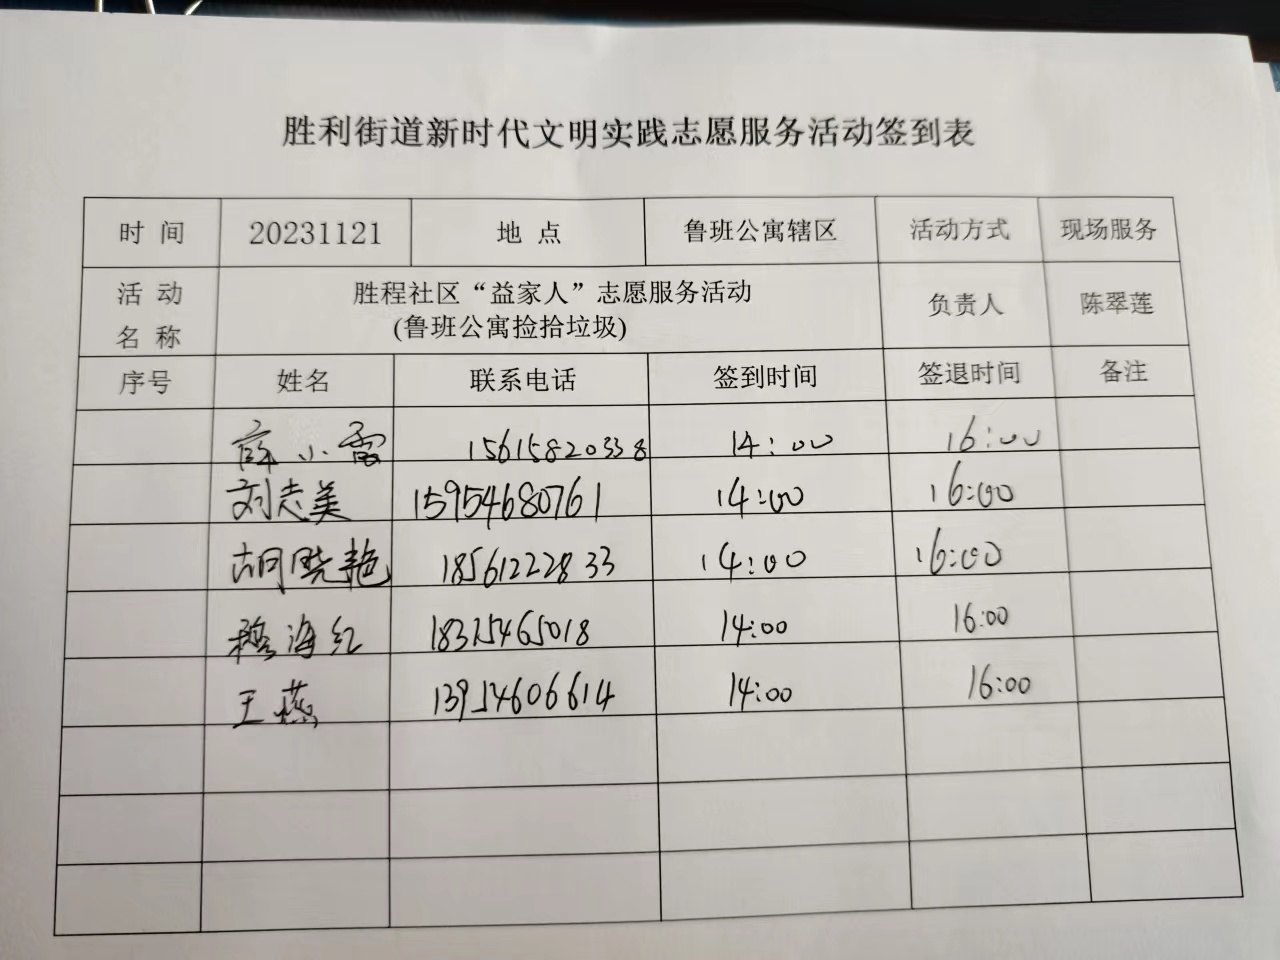 胜利街道新时代文明实践志愿服务活动签到表
时 间 20231121 地 点 鲁班公寓辖区 活动方式 现场服务
活 动 名 称 胜程社区“益家人”志愿服务活动 (鲁班公寓捡拾垃圾) 负责人 陈翠莲
序号 姓名 联系电话 签到时间 签退时间 备注
薛小霞 15615820338 14:00 16:00
刘志美 15954680761 14:00 16:00
胡晓艳 18561222833 14:00 16:00
穆海红 18315465018 14:00 16:00
王燕 13954606614 14:00 16:00